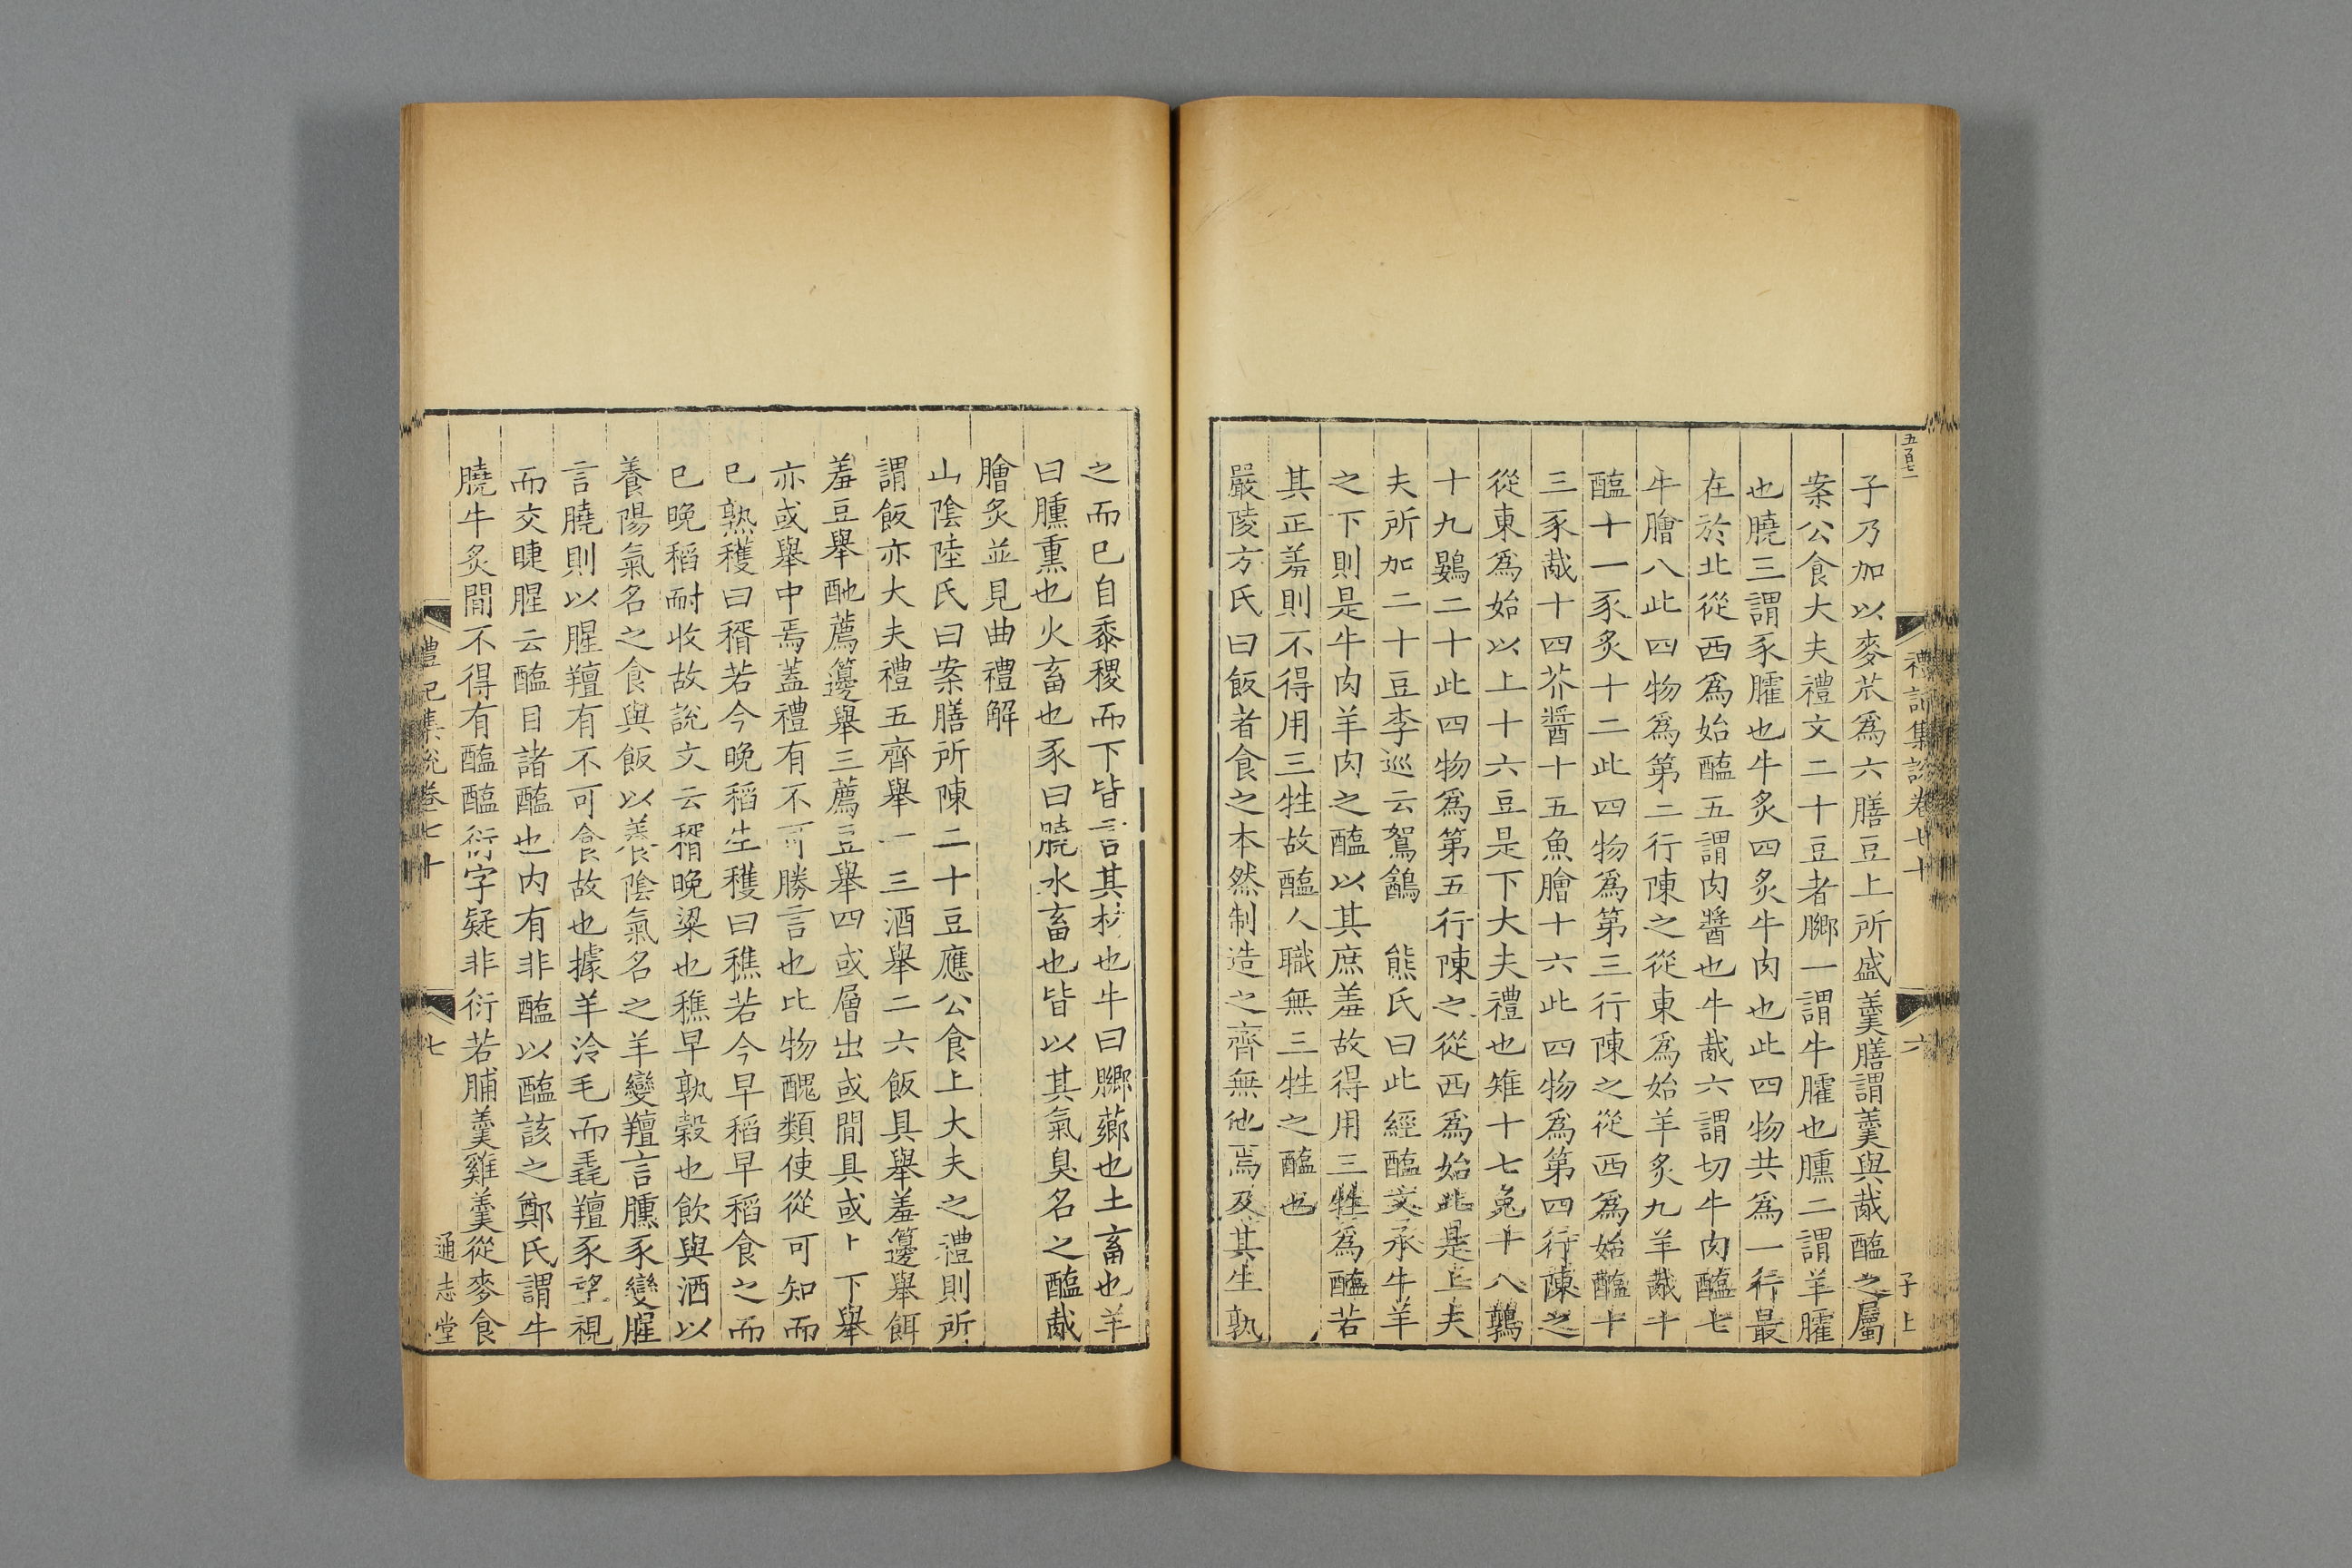 五百七
禮記集說卷七十
六
子上
子乃加以麥苽爲六膳豆上所盛羹膳謂羹與胾醢之屬
案公食大夫禮文二十豆者膷一謂牛臛也臐二謂羊臛
也膮三謂豕臛也牛炙四炙牛肉也此四物共爲一行最
在於北從西爲始醢五謂肉醬也牛胾六謂切牛肉醢七
牛膾八此四物爲第二行陳之從東爲始羊炙九羊胾十
醢十一豕炙十二此四物爲第三行陳之從西爲始醢十
三豕胾十四芥醬十五魚膾十六此四物爲第四行陳之
從東爲始以上十六豆是下大夫禮也雉十七兔十八鶉
十九鷃二十此四物爲第五行陳之從西爲始此是上大夫
夫所加二十豆李巡云鴽鶕 熊氏曰此經醢文承牛羊
之下則是牛肉羊肉之醢以其庶羞故得用三牲爲醢若
其正羞則不得用三牲故醢人職無三牲之醢也
嚴陵方氏曰飯者食之本然制造之齊無他焉及其生孰
之而已自黍稷而下皆言其材也牛曰膷薌也土畜也羊
曰臐熏也火畜也豕曰膮水畜也皆以其氣臭名之醢胾
膾炙並見曲禮解
山陰陸氏曰案膳所陳二十豆應公食上大夫之禮則所
謂飯亦大夫禮五齊舉一三酒舉二六飯具舉羞籩舉餌
羞豆舉酏薦籩舉三薦豆舉四或層出或閒具或上下舉
亦或舉中焉蓋禮有不可勝言也比物醜類使從可知而
已孰穫曰稰若今晚稻生穫曰穛若今早稻早稻食之而
已晚稻耐收故說文云稰晚粱也穛早孰穀也飲與酒以
養陽氣名之食與飯以養陰氣名之羊變羶言臐豕變腥
言膮則以腥羶有不可食故也據羊泠毛而毳羶豕望視
而交睫腥云醢目諸醢也内有非醢以醢該之鄭氏謂牛
膮牛炙閒不得有醢醢衍字疑非衍若脯羹雞羹從麥食
禮記集說卷七十
七
通志堂